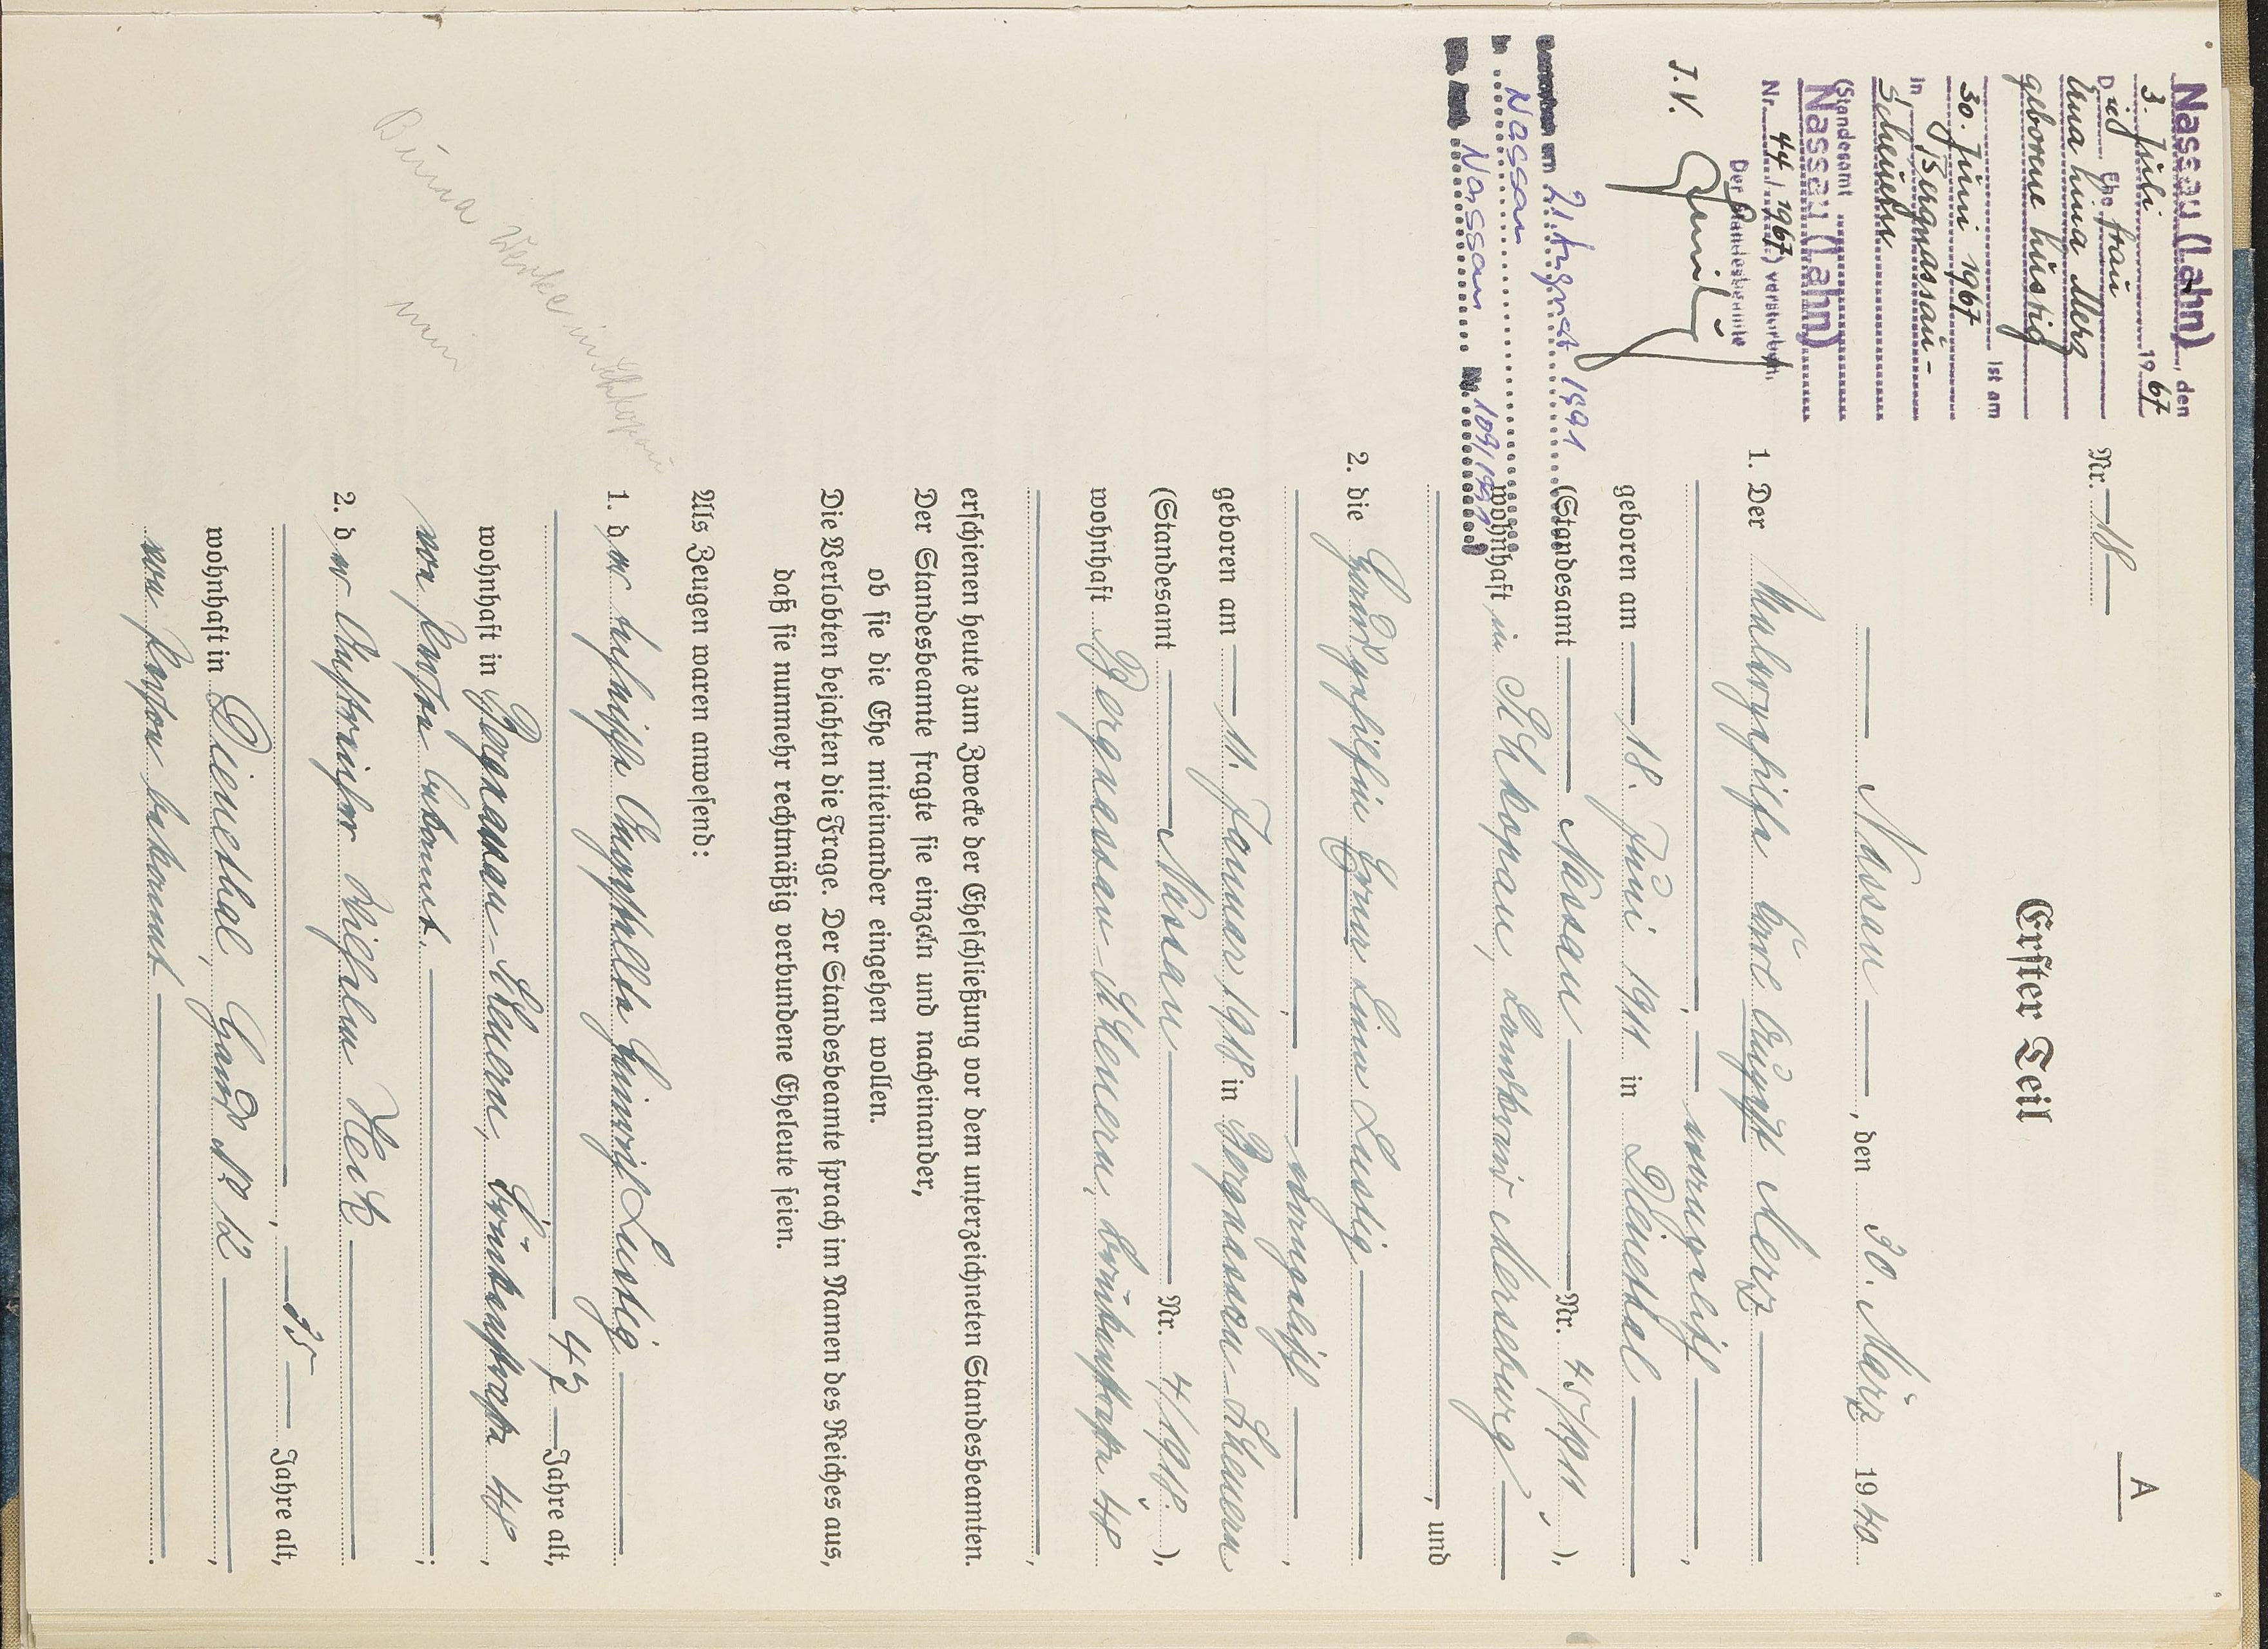 A
Nr. 18
Erster Teil
Nassau, den 30. März 1940
1. Der Malergehilfe Emil August Merz
evangelisch,
geboren am 18. Juni 1911 in Dienethal
(Standesamt Nassau Nr. 45/1911),
wohnhaft in Schkopau, Landkreis Merseburg
, und
2. die Hausgehilfin Erna Lina Lustig
, evangelisch,
geboren am 11. Januar 1918 in Bergnassau-Scheuern
(Standesamt Nassau Nr. 4/1918.),
wohnhaft Bergnassau-Scheuern, Brückenstraße 48
,
erschienen heute zum Zwecke der Eheschließung vor dem unterzeichneten Standesbeamten.
Der Standesbeamte fragte sie einzeln und nacheinander,
ob sie die Ehe miteinander eingehen wollen.
Die Verlobten bejahten die Frage. Der Standesbeamte sprach im Namen des Reiches aus,
daß sie nunmehr rechtmäßig verbundene Eheleute seien.
Als Zeugen waren anwesend:
1. der Heinrich Lustig
, 47 Jahre alt,
wohnhaft in Bergnassau-Scheuern, Brückenstraße 48,
von Person bekannt.;
2. der Anstreicher Wilhelm Heik
, 35 Jahre alt,
wohnhaft in Dienethal, Haus Nr 12,
von Person bekannt.
Nassau (Lahn), den
3. Juli 1967
Die Ehefrau
Erna Lina Merz
geborene Lustig
ist am
30. Juni 1967
in Bergnassau-
Scheuern
(Standesamt
Nassau (Lahn)
Nr. 44/1967) verstorben.
Der Standesbeamte
J.V.
am 21. August 1991
in Nassau
Nassau Nr. 109/1991
Buna Werke in Schkopau